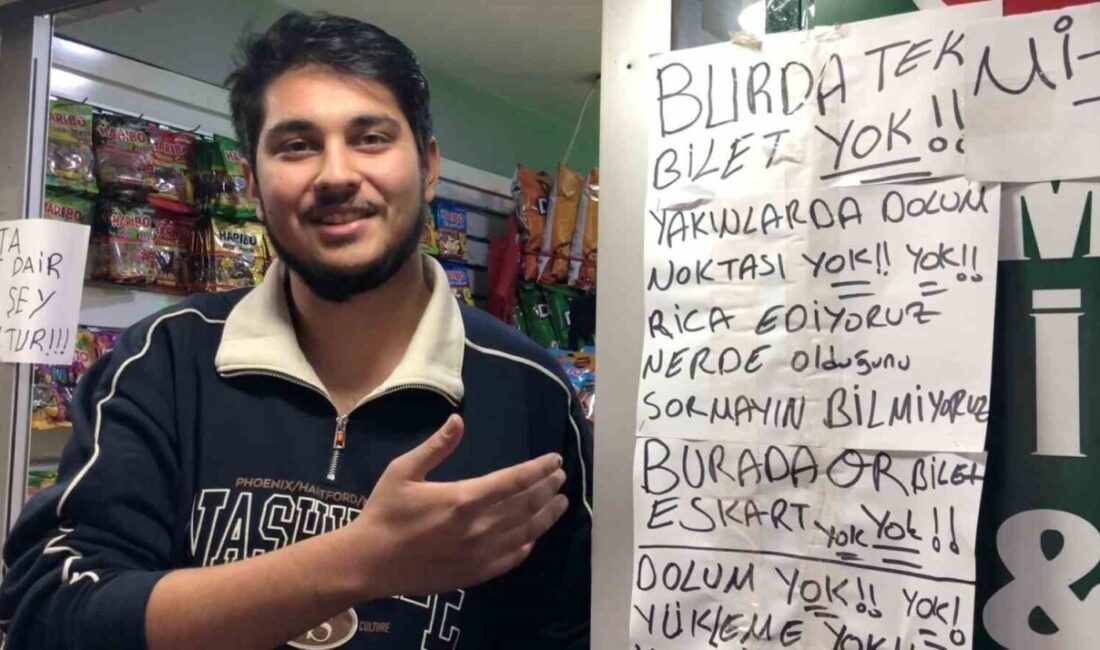 BURDA TEK
BİLET YOK!!
YAKINLARDA DOLUM
NOKTASI YOK!! YOK!!
RİCA EDİYORUZ
NERDE olduğunu
SORMAYIN BİLMİYORUZ
BURADA QR BİLET
ESKART YOK YOK!!
DOLUM YOK!! YOK!
YÜKLEME YOK!!
Mİ-
TA
DAİR
ŞEY
TUR!!!
HARIBO
HARIBO
HARIBO
HARIBO
HARIBO
PHOENIX/HARTFORD/
NASHV
CULTURE
İ
&